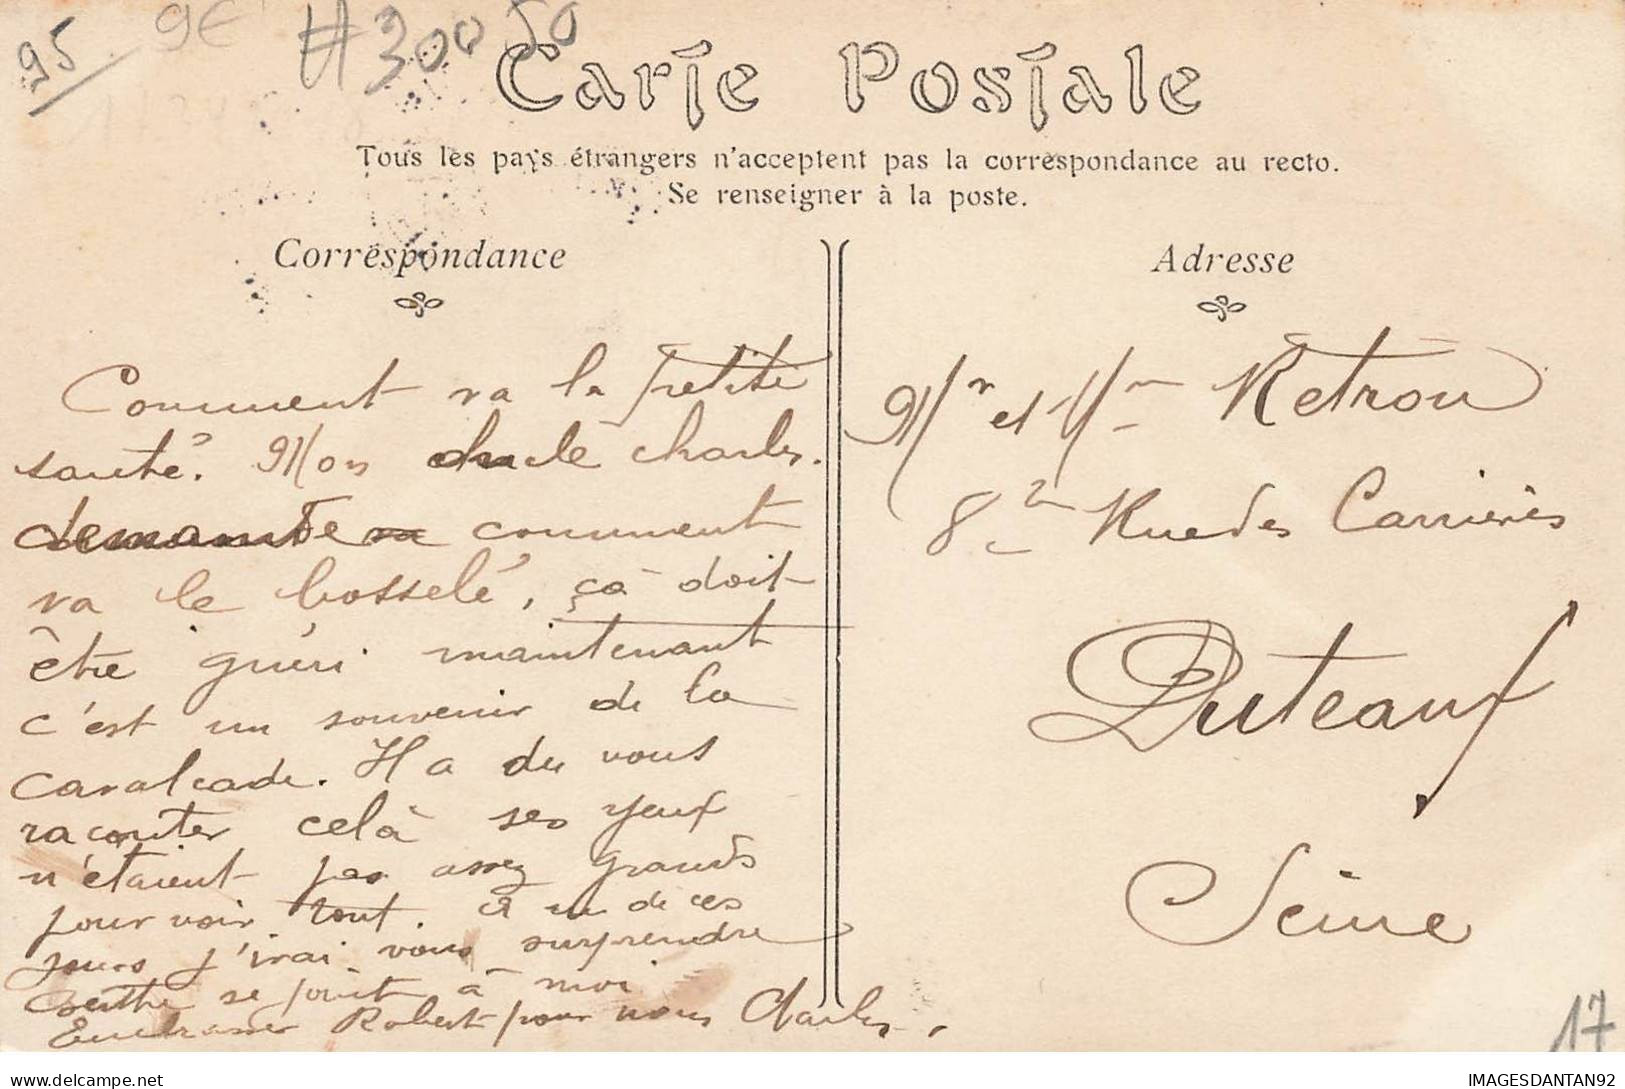 95
9€
#30050
Carte Postale
Tous les pays étrangers n'acceptent pas la correspondance au recto.
Se renseigner à la poste.
Correspondance
Comment va la petite
santé? Mon oncle charles.
demande comment
va le bosselé, çà doit
être guéri maintenant
c'est un souvenir de la
cavalcade. Il a du vous
raconter celà ses yeux
n'étaient pas assez grands
pour voir tout. A un de ces
jours j'irai vous surprendre
Berthe se joint à moi
Embrasser Robert pour nous Charles.
Adresse
Mr et Mm Retrou
8 Rue des Carrières
Puteaux
Seine
17
delcampe.net
IMAGESDANTAN92